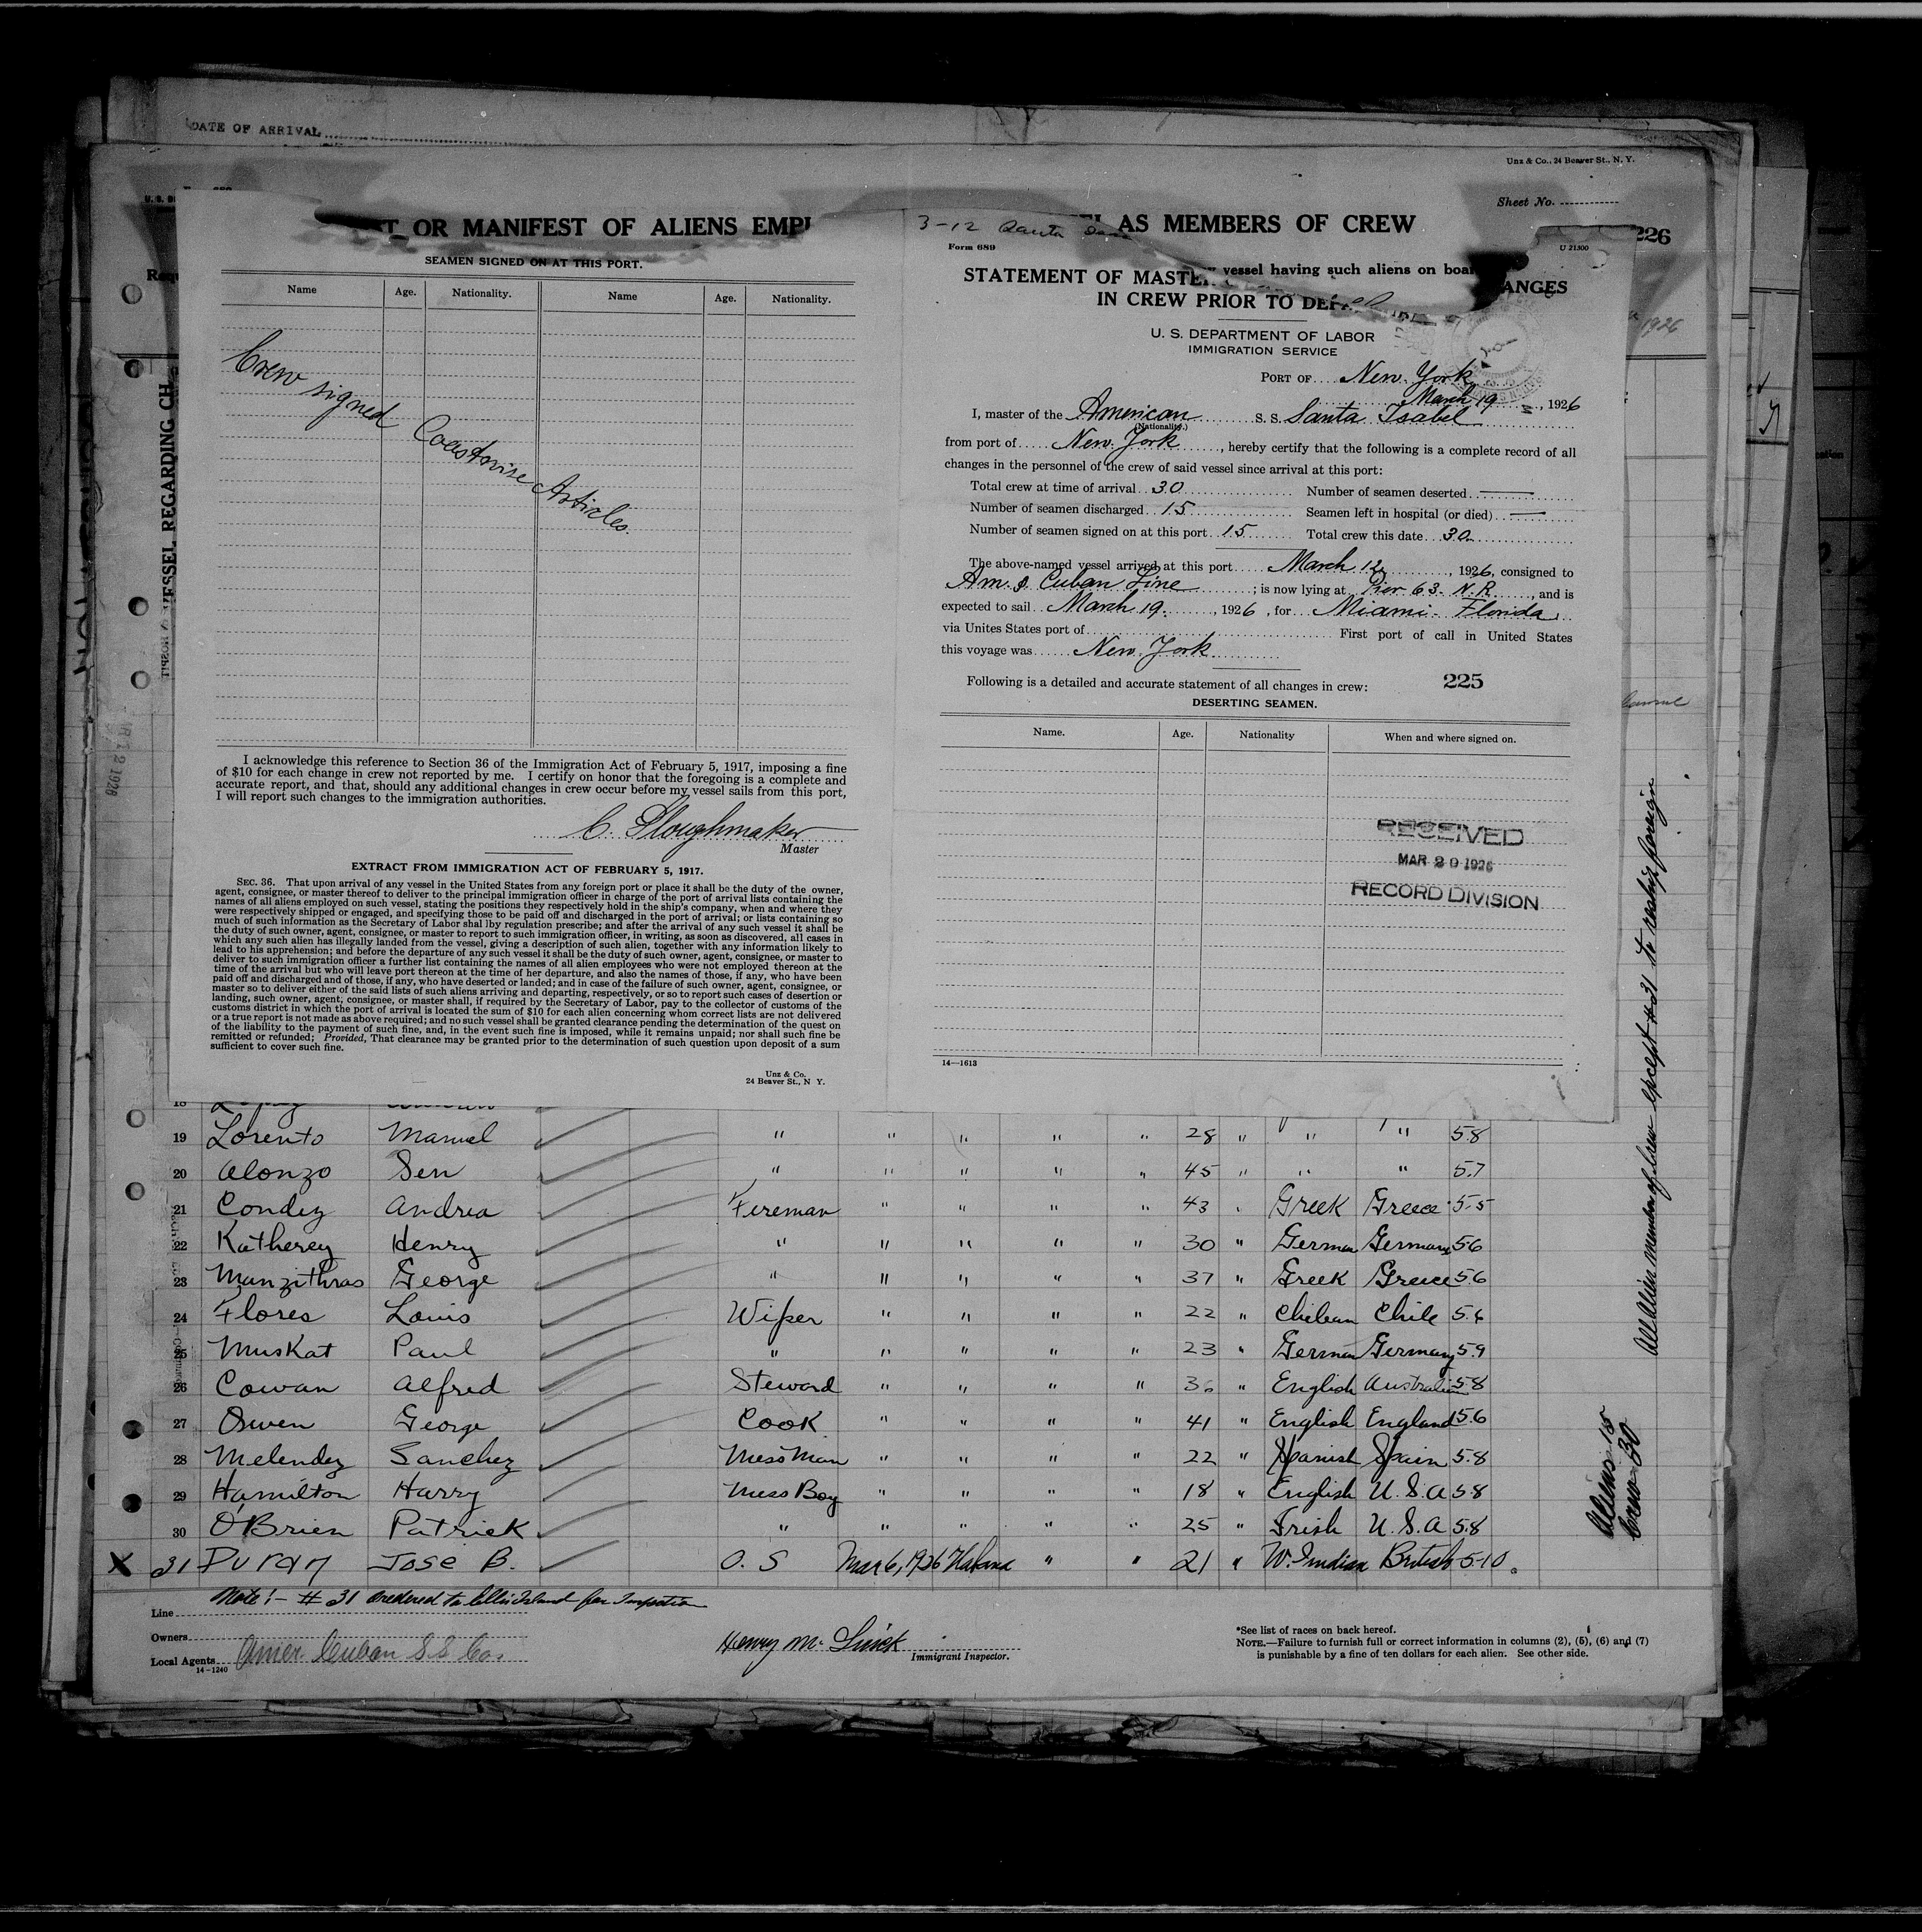 DATE OF ARRIVAL
Unz & Co., 24 Beaver St., N. Y.
Sheet No.
OR MANIFEST OF ALIENS
AS MEMBERS OF CREW
226
SEAMEN SIGNED ON AT THIS PORT.
Name Age. Nationality. Name Age. Nationality.
Crew signed Coastwise Articles.
I acknowledge this reference to Section 36 of the Immigration Act of February 5, 1917, imposing a fine
of $10 for each change in crew not reported by me. I certify on honor that the foregoing is a complete and
accurate report, and that, should any additional changes in crew occur before my vessel sails from this port,
I will report such changes to the immigration authorities.
C. Sloughmaker
Master
EXTRACT FROM IMMIGRATION ACT OF FEBRUARY 5, 1917.
SEC. 36. That upon arrival of any vessel in the United States from any foreign port or place it shall be the duty of the owner,
agent, consignee, or master thereof to deliver to the principal immigration officer in charge of the port of arrival lists containing the
names of all aliens employed on such vessel, stating the positions they respectively hold in the ship's company, when and where they
were respectively shipped or engaged, and specifying those to be paid off and discharged in the port of arrival; or lists containing so
much of such information as the Secretary of Labor shal lby regulation prescribe; and after the arrival of any such vessel it shall be
the duty of such owner, agent, consignee, or master to report to such immigration officer, in writing, as soon as discovered, all cases in
which any such alien has illegally landed from the vessel, giving a description of such alien, together with any information likely to
lead to his apprehension; and before the departure of any such vessel it shall be the duty of such owner, agent, consignee, or master to
deliver to such immigration officer a further list containing the names of all alien employees who were not employed thereon at the
time of the arrival but who will leave port thereon at the time of her departure, and also the names of those, if any, who have been
paid off and discharged and of those, if any, who have deserted or landed; and in case of the failure of such owner, agent, consignee, or
master so to deliver either of the said lists of such aliens arriving and departing, respectively, or so to report such cases of desertion or
landing, such owner, agent, consignee, or master shall, if required by the Secretary of Labor, pay to the collector of customs of the
customs district in which the port of arrival is located the sum of $10 for each alien concerning whom correct lists are not delivered
or a true report is not made as above required; and no such vessel shall be granted clearance pending the determination of the quest on
of the liability to the payment of such fine, and, in the event such fine is imposed, while it remains unpaid; nor shall such fine be
remitted or refunded; Provided, That clearance may be granted prior to the determination of such question upon deposit of a sum
sufficient to cover such fine.
Unz & Co.
24 Beaver St., N Y.
3-12 Santa
Form 689
U 21300
vessel having such aliens on
STATEMENT OF
IN CREW PRIOR TO
U. S. DEPARTMENT OF LABOR
IMMIGRATION SERVICE
PORT OF New York
March 19, 1926
I, master of the American S. S. Santa Isabel
(Nationality.)
from port of New York, hereby certify that the following is a complete record of all
changes in the personnel of the crew of said vessel since arrival at this port:
Total crew at time of arrival 30 Number of seamen deserted —
Number of seamen discharged 15 Seamen left in hospital (or died) —
Number of seamen signed on at this port 15 Total crew this date 30
The above-named vessel arrived at this port March 12, 1926, consigned to
Am. & Cuban Line; is now lying at Pier 63 N.R., and is
expected to sail March 19, 1926, for Miami Florida
via Unites States port of First port of call in United States
this voyage was New York
Following is a detailed and accurate statement of all changes in crew: 225
DESERTING SEAMEN.
Name. Age. Nationality When and where signed on.
RECEIVED
MAR 20 1926
RECORD DIVISION
14—1613
VESSEL REGARDING CH
1926
19 Lorento Manuel " " " " " 28 " " " 5.8
20 Alonzo Sen " " " " " 45 " " " 5.7
21 Condez Andrea Fireman " " " " 43 " Greek Greece 5.5
22 Katherey Henry " " " " " 30 " German Germany 5.6
23 Manzithras George " " " " " 37 " Greek Greece 5.6
24 Flores Louis Wiper " " " " 22 " Chilean Chile 5.6
25 Muskat Paul " " " " " 23 " German Germany 5.9
26 Cowan Alfred Steward " " " " 36 " English Australia 5.8
27 Owen George Cook " " " " 41 " English England 5.6
28 Melendez Sanchez Mess Man " " " " 22 " Spanish Spain 5.8
29 Hamilton Harry Mess Boy " " " " 18 " English U.S.A 5.8
30 O'Brien Patrick " " " " " 25 " Irish U.S.A 5.8
X 31 Duran Jose B. O. S Mar 6, 1926 Habana " " 21 " W. Indian British 5-10
Note:- # 31 ordered to Ellis Island for Inspection
Line
Owners
Local Agents Amer. Cuban S.S. Co.
14-1240
Henry M.
Immigrant Inspector.
*See list of races on back hereof.
NOTE.—Failure to furnish full or correct information in columns (2), (5), (6) and (7)
is punishable by a fine of ten dollars for each alien. See other side.
All Alien members of crew except #31 to reship foreign
Aliens 15
Crew 30